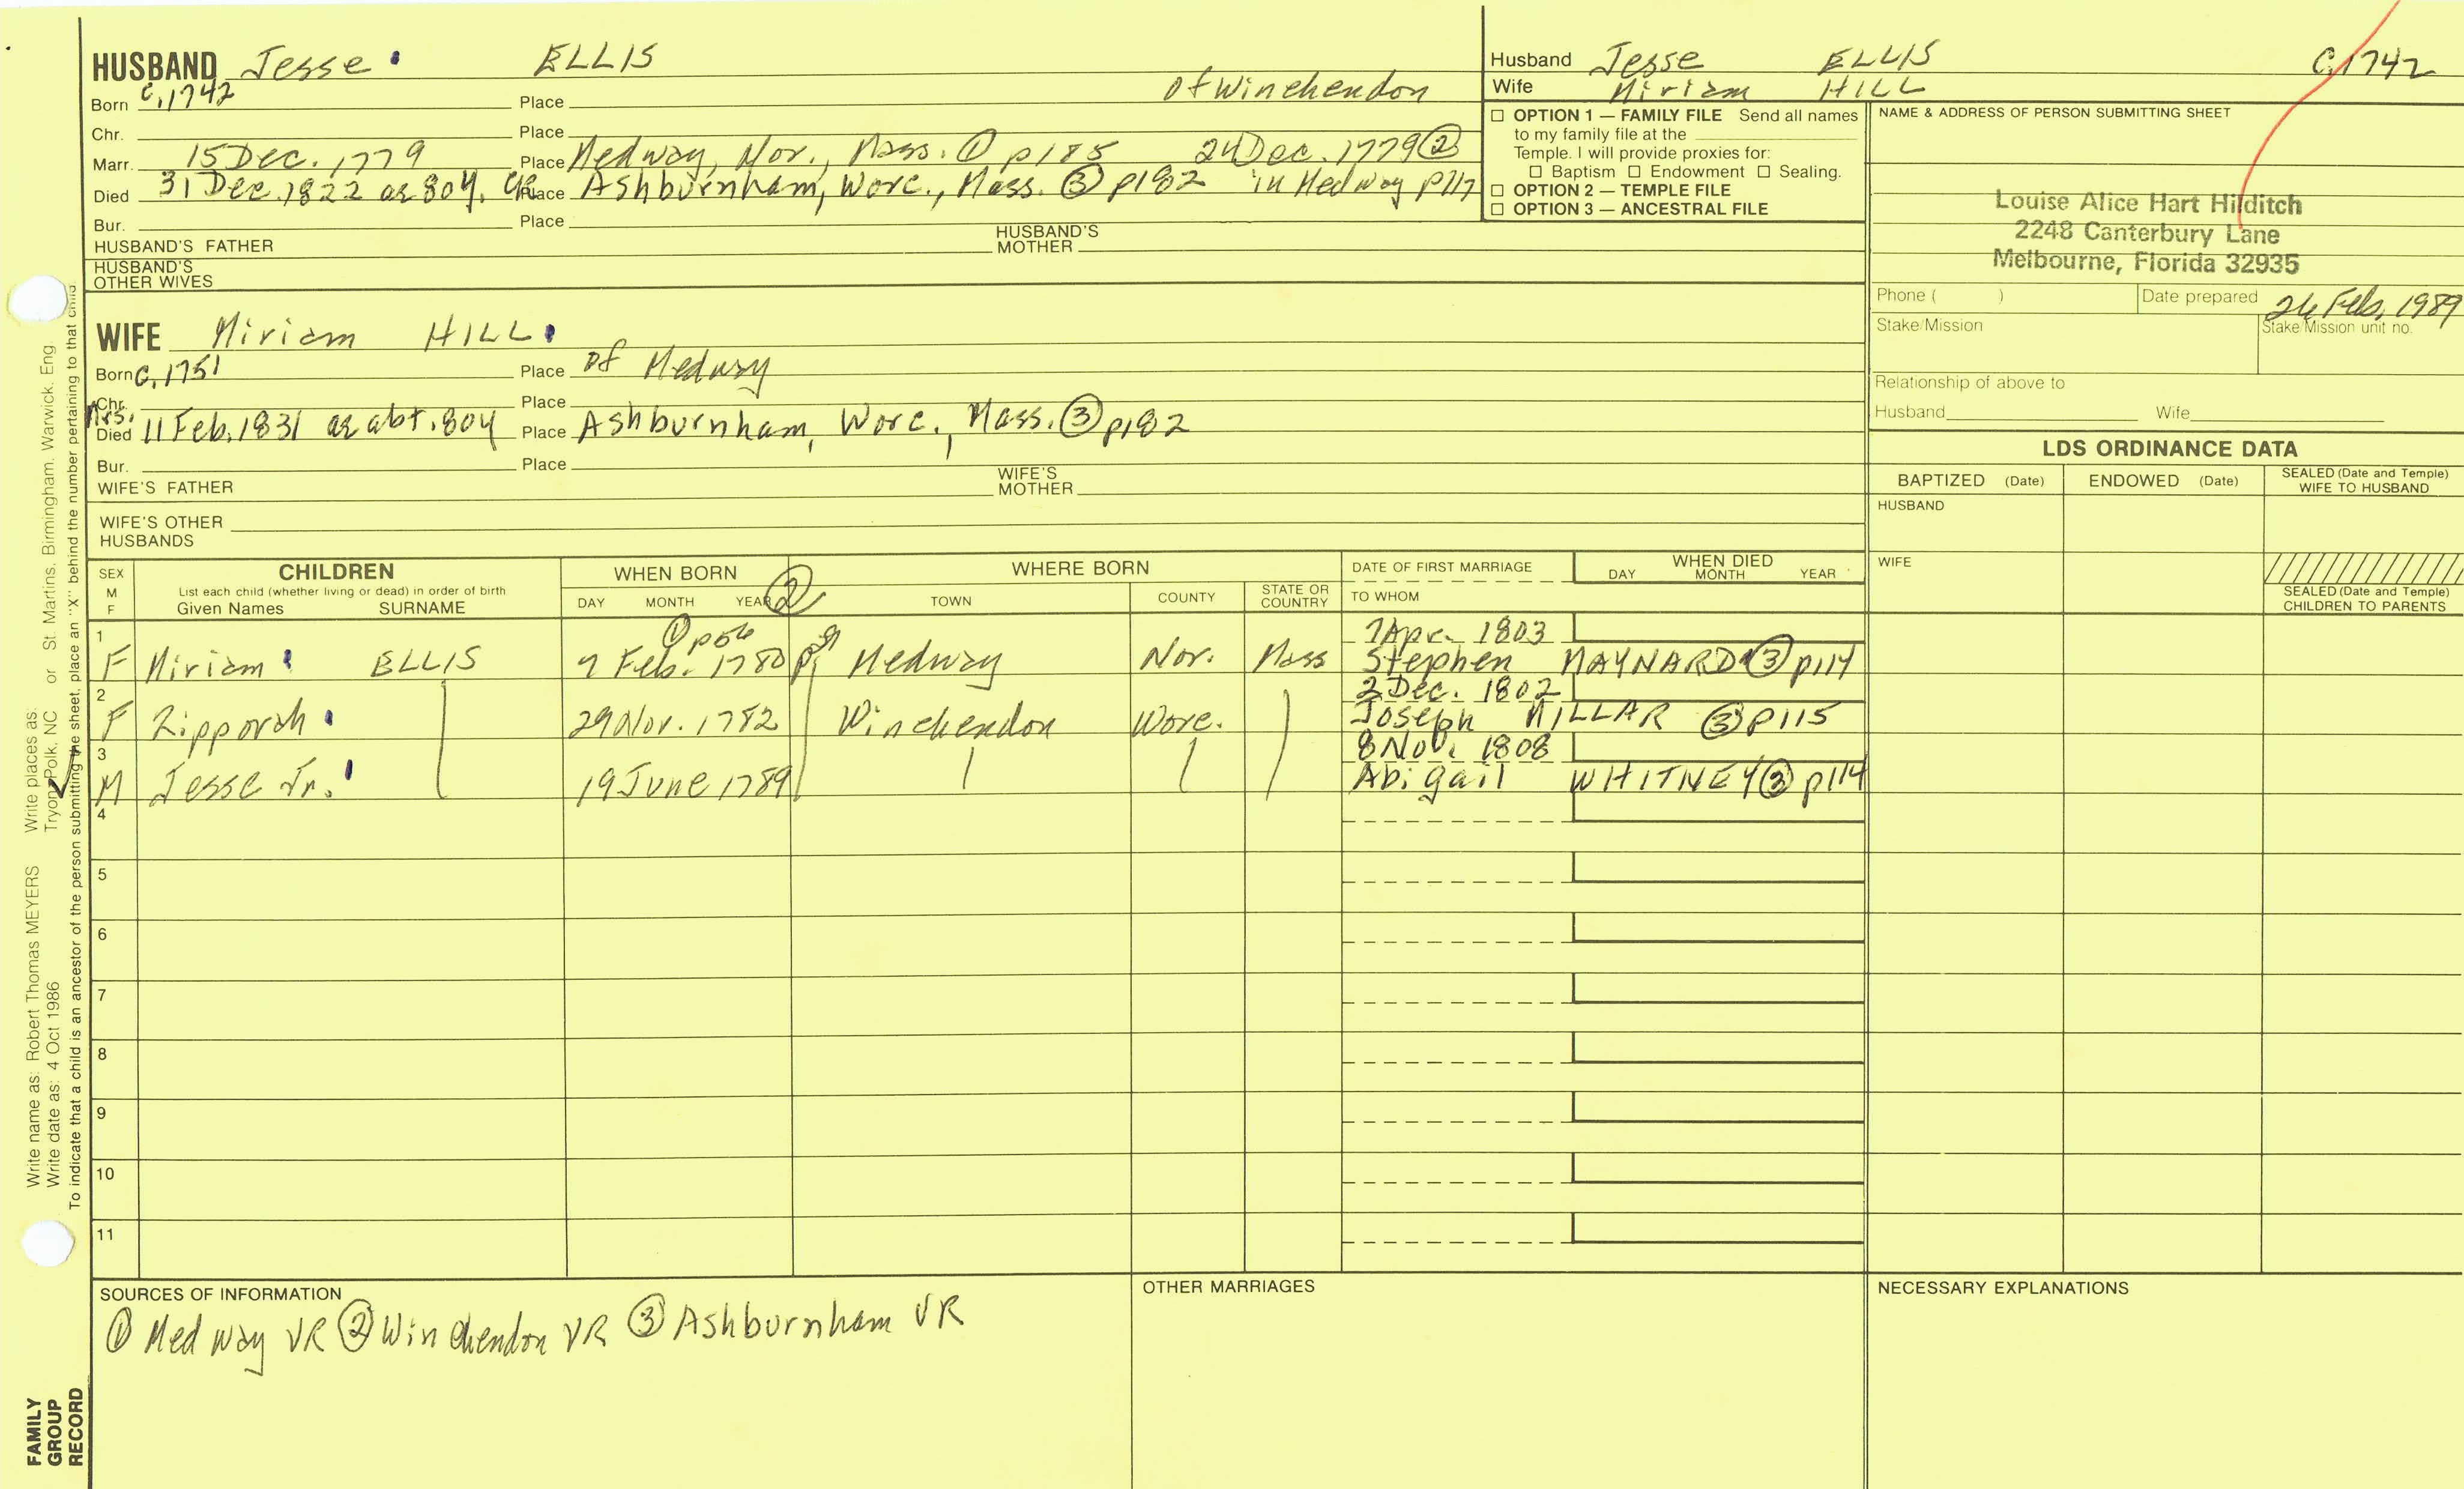 HUSBAND Jesse ELLIS
Born c.1742 Place of Winchendon
Chr. Place
Marr. 15 Dec. 1779 Place Medway, Nor., Mass. ① p185 24 Dec. 1779 ②
Died 31 Dec. 1822 ae 80y. Place Ashburnham, Worc., Mass. ③ p182 in Medway p117
Bur. Place
HUSBAND'S FATHER HUSBAND'S MOTHER
HUSBAND'S OTHER WIVES
WIFE Miriam HILL
Born c.1751 Place of Medway
Chr. Place
Mrs.
Died 11 Feb. 1831 ae abt. 80y Place Ashburnham, Worc., Mass. ③ p182
Bur. Place
WIFE'S FATHER WIFE'S MOTHER
WIFE'S OTHER HUSBANDS
Husband Jesse ELLIS c.1742
Wife Miriam HILL
☐ OPTION 1 — FAMILY FILE Send all names
to my family file at the
Temple. I will provide proxies for:
☐ Baptism ☐ Endowment ☐ Sealing.
☐ OPTION 2 — TEMPLE FILE
☐ OPTION 3 — ANCESTRAL FILE
NAME & ADDRESS OF PERSON SUBMITTING SHEET
Louise Alice Hart Hilditch
2248 Canterbury Lane
Melbourne, Florida 32935
Phone ( ) Date prepared 26 Feb. 1989
Stake/Mission Stake/Mission unit no.
Relationship of above to
Husband Wife
LDS ORDINANCE DATA
BAPTIZED (Date) ENDOWED (Date) SEALED (Date and Temple) WIFE TO HUSBAND
HUSBAND
WIFE
SEALED (Date and Temple) CHILDREN TO PARENTS
SEX M F
CHILDREN
List each child (whether living or dead) in order of birth
Given Names SURNAME
WHEN BORN
DAY MONTH YEAR ②
WHERE BORN
TOWN COUNTY STATE OR COUNTRY
DATE OF FIRST MARRIAGE
TO WHOM
WHEN DIED
DAY MONTH YEAR
① p56
1 7 Apr. 1803
F Miriam ELLIS 7 Feb. 1780 Medway Nor. Mass Stephen MAYNARD ③ p114
2 2 Dec. 1802
F Zipporah 29 Nov. 1782 Winchendon Worc. Joseph MILLAR ③ p115
3 8 Nov. 1808
M Jesse Jr. 19 June 1789 Abigail WHITNEY ③ p114
4
5
6
7
8
9
10
11
SOURCES OF INFORMATION
① Medway VR ② Winchendon VR ③ Ashburnham VR
OTHER MARRIAGES
NECESSARY EXPLANATIONS
Write name as: Robert Thomas MEYERS Write places as: Tryon, Polk, NC or St. Martins, Birmingham, Warwick, Eng.
Write date as: 4 Oct 1986
To indicate that a child is an ancestor of the person submitting the sheet, place an "X" behind the number pertaining to that child.
FAMILY
GROUP
RECORD